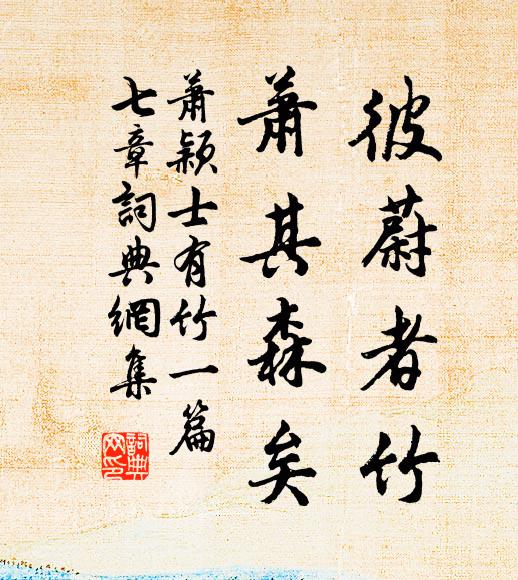 彼蔚者竹
蕭其森矣
蕭穎士有竹一篇
七章詞典網集
詞典
网印